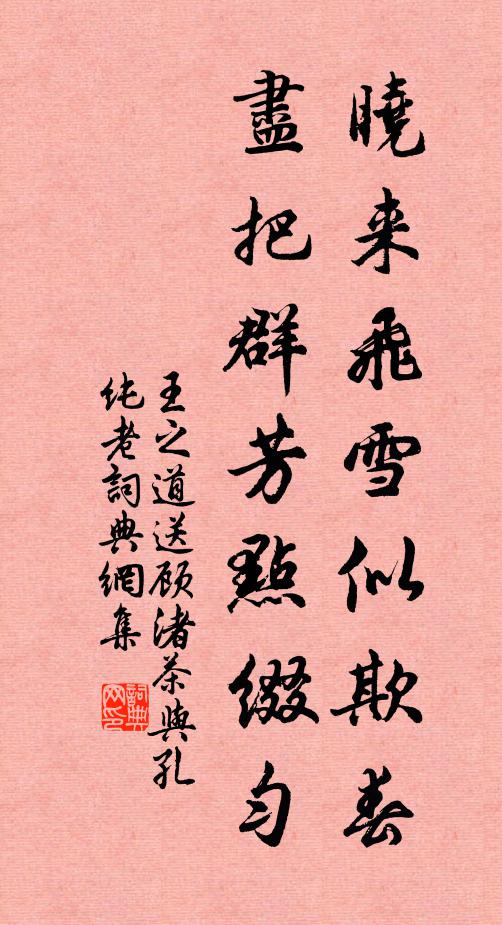 曉来飛雪似欺春
盡把群芳點綴勻
王之道送顾渚茶與孔
纯老詞典網集
詞典网印